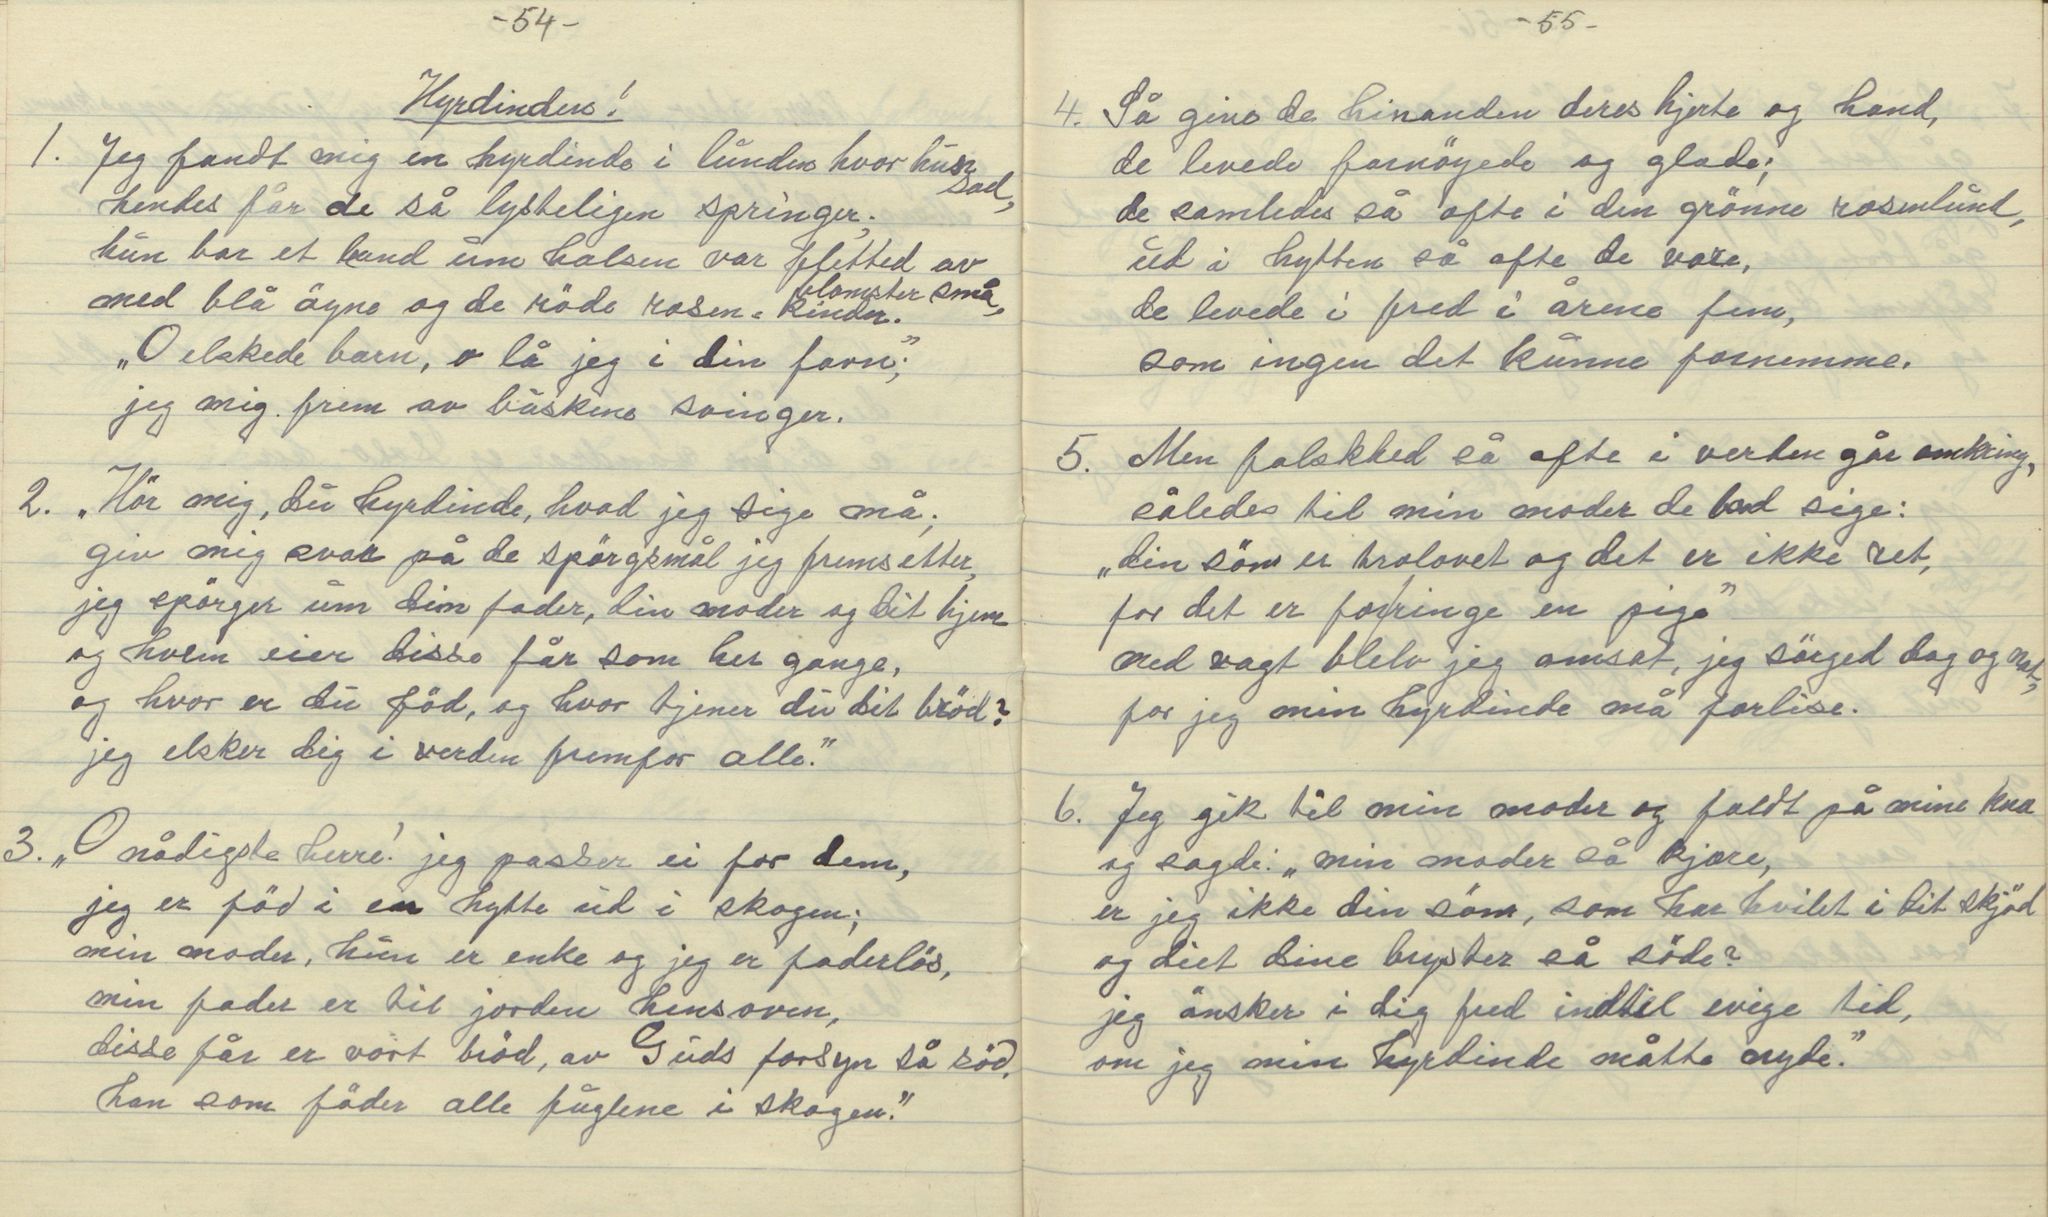 -54-
Hyrdinden!
1. Jeg fandt mig en hyrdinde i lunden hvor hun sad,
hendes får de så lysteligen springer;
hun bar et band um halsen var fletted av blomster små,
med blå öyne og de röde rosen-kinder.
„O elskede barn, o lå jeg i din favn;"
jeg mig frem av buskene svinger.
2. „Hör mig, du hyrdinde, hvad jeg sige må;
giv mig svar på de spörgsmål jeg fremsetter,
jeg spörger um din fader, din moder og dit hjem
og hvem eier disse får som her gange,
og hvor er du föd, og hvor tjener du dit bröd?
jeg elsker dig i verden fremfor alle."
3. „O nådigste herre! jeg passer ei for dem,
jeg er föd i en hytte ud i skogen;
min moder, hun er enke og jeg er faderlös,
min fader er til jorden hensoven,
disse får er vort bröd, av Guds forsyn så söd,
han som föder alle fuglene i skogen."
-55-
4. Så give de hinanden deres hjerte og hand,
de levede fornöyede og glade;
de samledes så ofte i den grönne rosenlund,
ud i hytten så ofte de vare,
de levede i fred i årene fem,
som ingen det kunne fornemme.
5. Men falskhed så ofte i verden går omkring,
således til min moder de bad sige:
„din sön er trolovet og det er ikke ret,
for det er for ringe en pige"
med vagt blev jeg omsat, jeg sörged dag og nat,
for jeg min hyrdinde må forlise.
6. Jeg gik til min moder og faldt på mine knæ
og sagde: „min moder så kjære,
er jeg ikke din sön, som har hvilet i dit skjöd
og diet dine bryster så söde?
jeg önsker i dig fred indtil evige tid,
om jeg min hyrdinde måtte nyde."